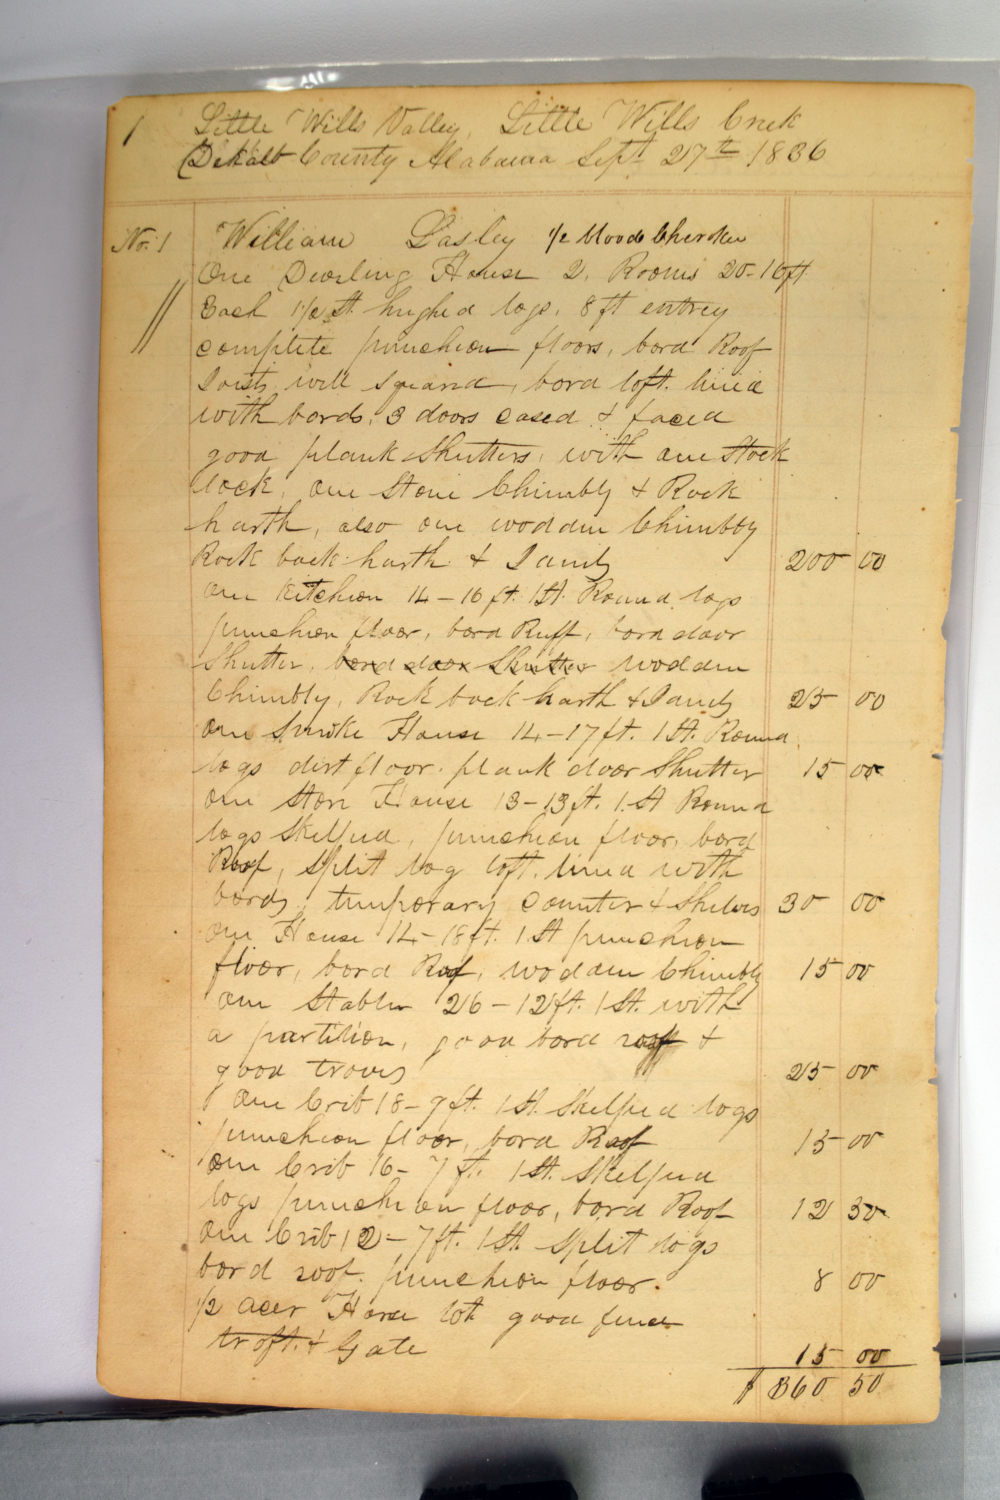 1 Little Wills Valley, Little Wills Creek
DeKalb County Alabama Sept 27th 1836
No. 1 William Lasley 1/2 blood Cherokee
One Dwelling House 2. Rooms 20-16ft
Each 1 1/2 St. hughed logs, 8 ft entrey
complete puncheon floors, bord Roof
Joists well squard, bord loft. lined
with bords, 3 doors cased & faced
good plank Shutters, with one Stock
lock, one Stone Chimbly & Rock
harth, also one wodden Chimbly
Rock back harth & Jambs 200 00
one Kitchion 14-16 ft. 1 St. Round logs
puncheon floor, bord Ruff, bord door
Shutter, bord door Shutter wodden
Chimbly, Rock back harth & Jambs 25 00
one Smoke House 14-17 ft. 1 St. Round
logs dirt floor. plank door Shutter 15 00
one Store House 13-13 ft. 1 St Round
logs Skelped, puncheon floor, bord
Roof, Split log loft. lined with
bords, temporary counter & Shelves 30 00
one House 14-18 ft. 1 St puncheon
floor, bord Roof, wodden Chimbly 15 00
one Stable 26-12 ft. 1 St. with
a partition, good bord roof &
good troves 25 00
One Crib 18-9 ft. 1 St. Skelped logs
puncheon floor, bord Roof 15 00
one Crib 16-7 ft. 1 St. Skelped
logs puncheon floor, bord Roof 12 50
one Crib 12-7 ft. 1 St. Split logs
bord roof. puncheon floor. 8 00
1/2 acer Horse lot good fence
troft. & Gate 15 00
$ 360 50